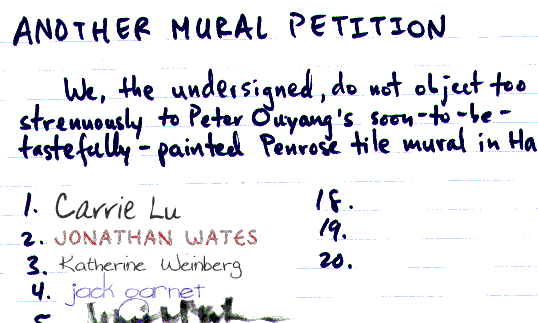 ANOTHER MURAL PETITION
We, the undersigned, do not object too
strenuously to Peter Ouyang's soon-to-be-
tastefully-painted Penrose tile mural in Ha
1. Carrie Lu
2. JONATHAN WATES
3. Katherine Weinberg
4. jack garnet
5.
18.
19.
20.